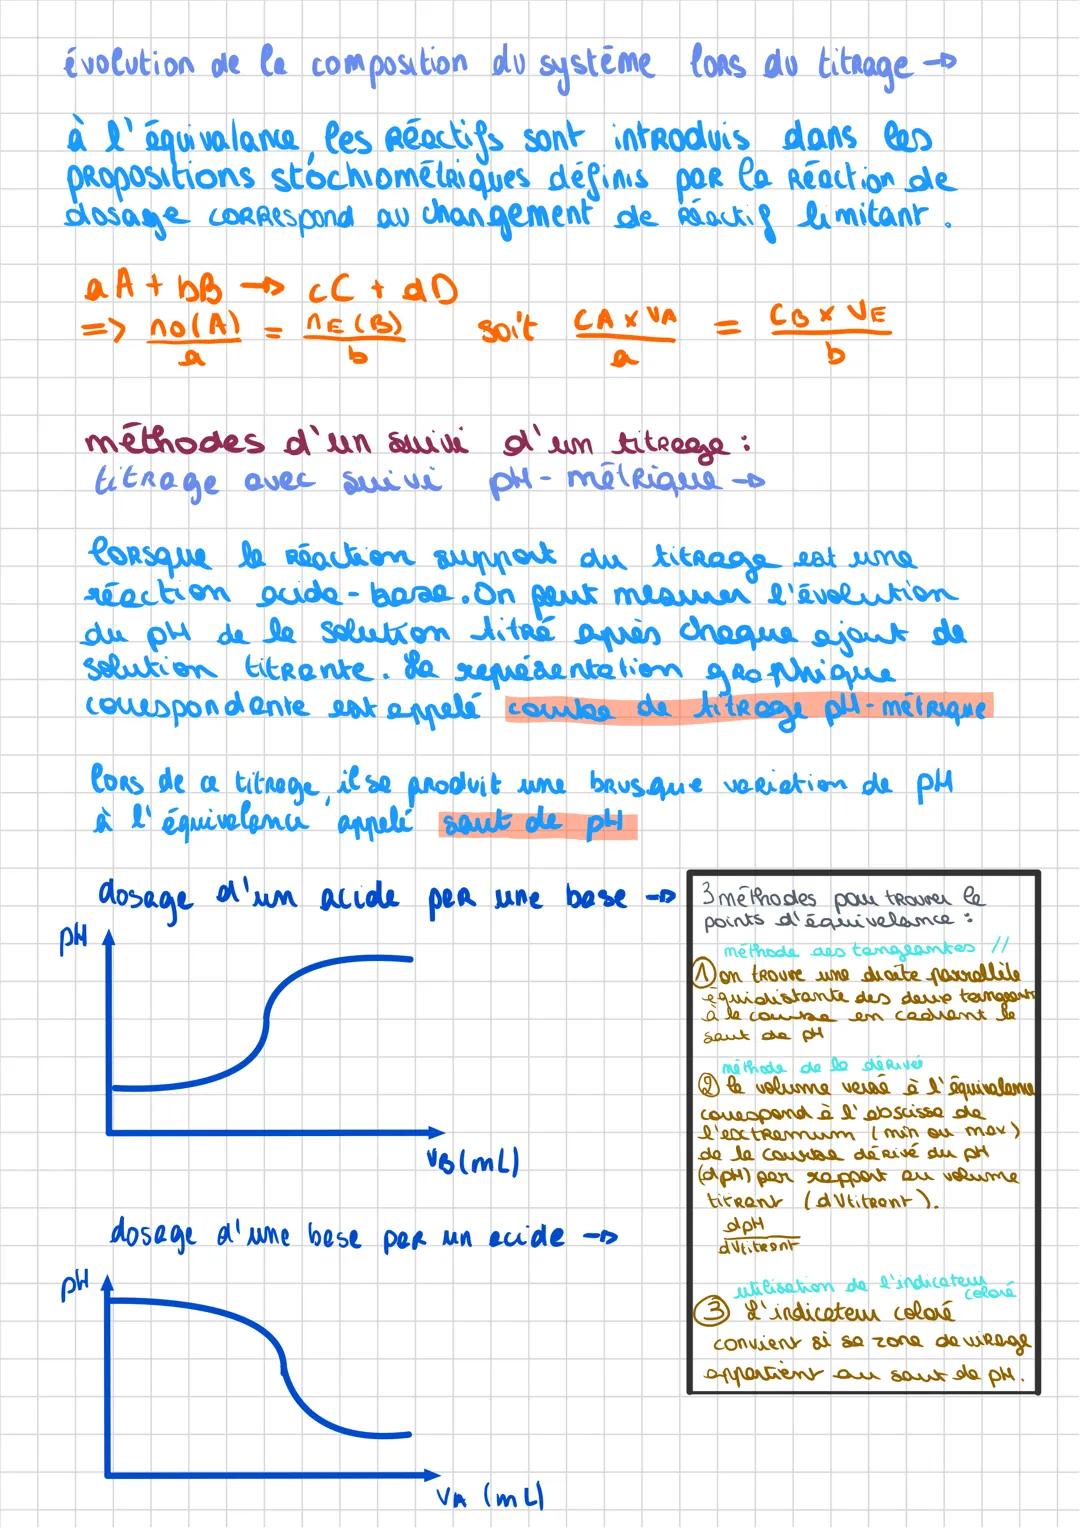 évolution de la composition du système lors du titrage →
à l'équivalance, les réactifs sont introduis dans les
propositions stochiométriques définis par la réaction de
dosage correspond au changement de réactif limitant.
aA + bB → cC + dD
=> no(A)/a = nE(B)/b soit CA x VA/a = CB x VE/b
méthodes d'un suivi d'un titrage :
titrage avec suivi pH-métrique →
lorsque la réaction support du titrage est une
réaction acide-base. On peut mesurer l'évolution
du pH de la solution titré après chaque ajout de
solution titrante. La représentation graphique
correspondante est appelé courbe de titrage pH-métrique
lors de ce titrage, il se produit une brusque variation de pH
à l'équivalence appelé saut de pH
dosage d'un acide par une base →
pH
VB (mL)
dosage d'une base par un acide →
pH
VA (mL)
3 méthodes pour trouver le
points d'équivalence :
méthode des tangeantes //
① on trouve une droite parrallèle
équidistante des deux tangeant
à la courbe en cadrant le
saut de pH
méthode de la dérivée
② le volume versé à l'équivalence
correspond à l'abscisse de
l'extremum (min ou max)
de la courbe dérivé du pH
(dpH) par rapport au volume
titrant (dVtitrant).
dpH
dVtitrant
utilisation de l'indicateur
coloré
③ L'indicateur coloré
convient si sa zone de virage
appartient au saut de pH.